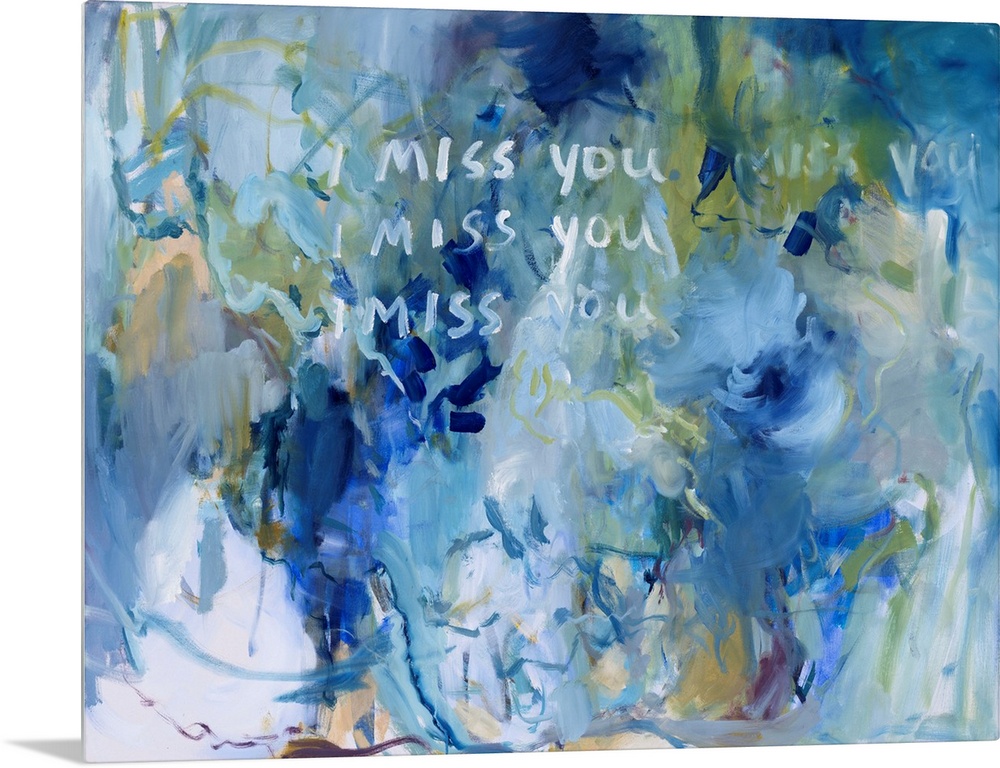 I MISS YOU. MISS YOU
I MISS YOU
I MISS YOU